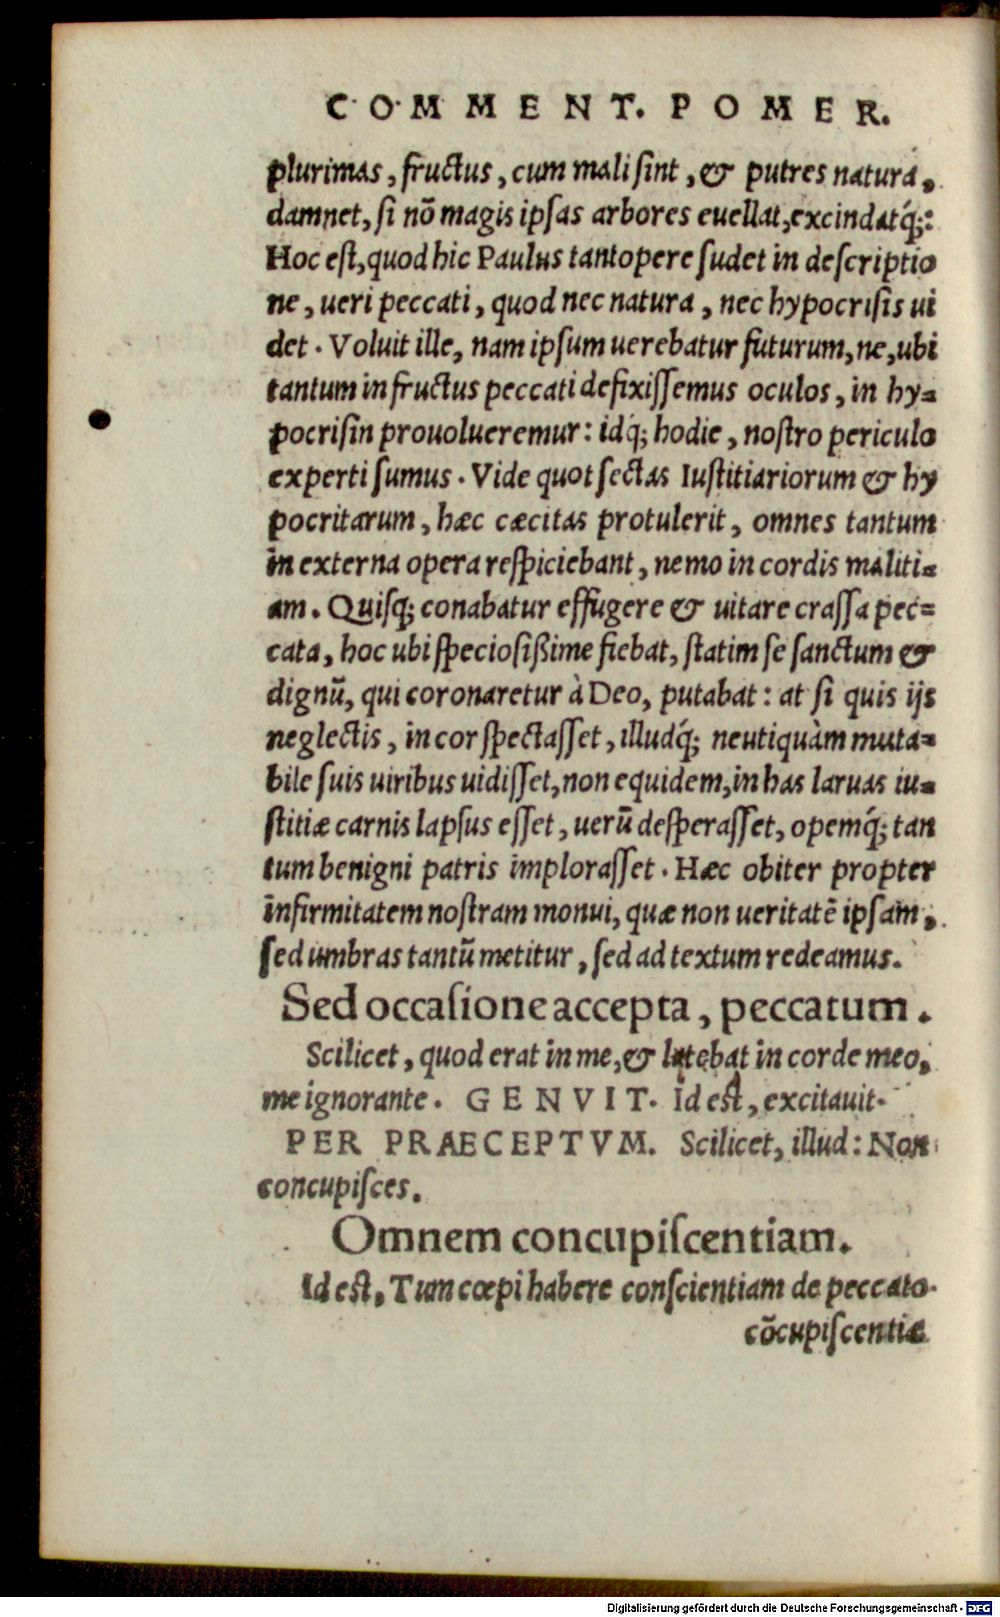 COMMENT. POMER.
plurimas, fructus, cum mali ſint, & putres natura,
damnet, ſi nõ magis ipſas arbores euellat, excindatq́;:
Hoc eſt, quod hic Paulus tantopere ſudet in deſcriptio
ne, ueri peccati, quod nec natura, nec hypocriſis ui
det. Voluit ille, nam ipſum uerebatur futurum, ne, ubi
tantum in fructus peccati defixiſſemus oculos, in hy=
pocriſin prouolueremur: idq́; hodie, noſtro periculo
experti ſumus. Vide quot ſectas Iuſtitiariorum & hy
pocritarum, hæc cæcitas protulerit, omnes tantum
in externa opera reſpiciebant, nemo in cordis maliti=
am. Quiſq; conabatur effugere & uitare craſſa pec=
cata, hoc ubi ſpecioſißime fiebat, ſtatim ſe ſanctum &
dignũ, qui coronaretur à Deo, putabat: at ſi quis ijs
neglectis, in cor ſpectaſſet, illudq́; neutiquàm muta=
bile ſuis uiribus uidiſſet, non equidem, in has laruas iu=
ſtitiæ carnis lapſus eſſet, uerũ deſperaſſet, opemq́; tan
tum benigni patris imploraſſet. Hæc obiter propter
infirmitatem noſtram monui, quæ non ueritatẽ ipſam,
ſed umbras tantũ metitur, ſed ad textum redeamus.
Sed occaſione accepta, peccatum.
Scilicet, quod erat in me, & latebat in corde meo,
me ignorante. GENVIT. Id eſt, excitauit.
PER PRAECEPTVM. Scilicet, illud: Non
concupiſces.
Omnem concupiſcentiam.
Id eſt, Tum cœpi habere conſcientiam de peccato
cõcupiſcentiæ
Digitalisierung gefördert durch die Deutsche Forschungsgemeinschaft - DFG